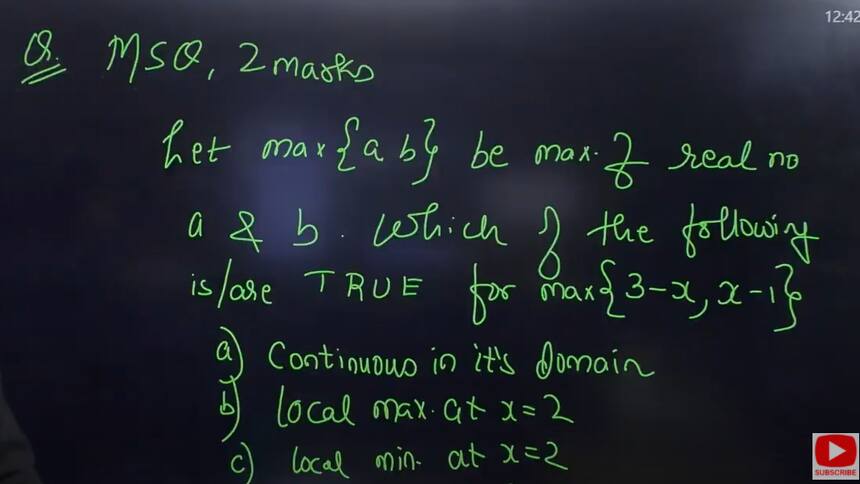 12:42
Q. MSQ, 2 marks
Let max{a b} be max. of real no
a & b. Which of the following
is/are TRUE for max{3-x, x-1}
a) Continuous in it's Domain
b) local max. at x=2
c) local min. at x=2
SUBSCRIBE